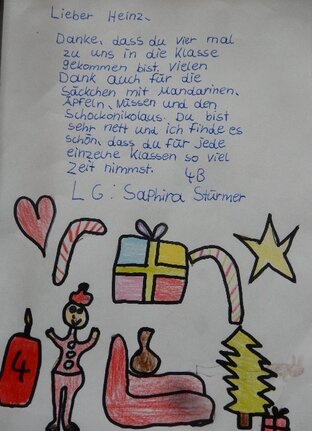 Lieber Heinz.
Danke, dass du vier mal
zu uns in die Klasse
gekommen bist. Vielen
Dank auch für die
Säckchen mit Mandarinen,
Äpfeln, Nüssen und den
Schockonikolaus. Du bist
sehr nett und ich finde es
schön, dass du für jede
einzelne Klassen so viel
Zeit nimmst. 4B
LG: Saphira Stürmer
4